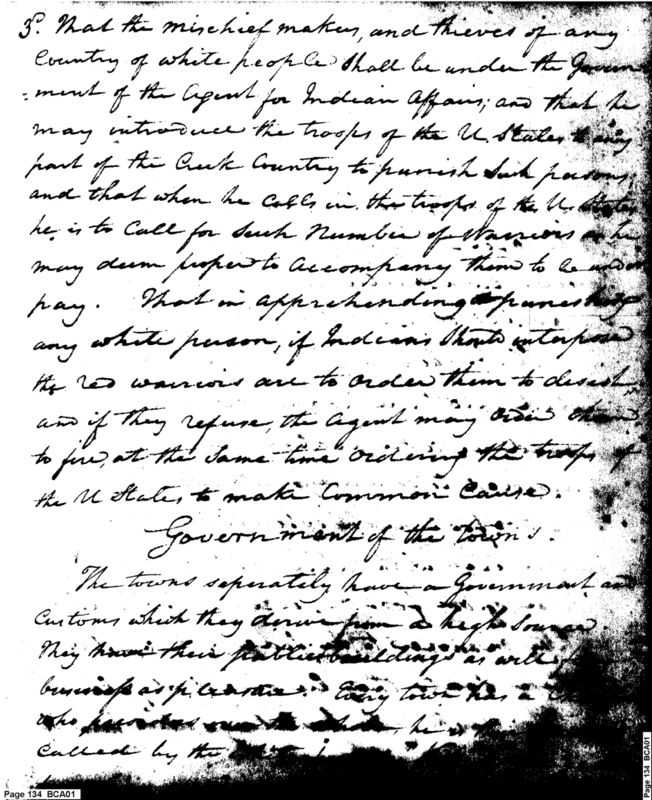 3d. That the mischief makers, and thieves of any
Country of white people shall be under the Govern
=ment of the Agent for Indian Affairs; and that he
may introduce the troops of the U. States to any
part of the Creek Country to punish such persons;
and that when he calls in the troops of the U. States
he is to call for such Number of Warriors as he
may deem proper to accompany them to be under
pay. That in apprehending or punishing
any white person, if Indians should interpose
the red warriors are to order them to desist,
and if they refuse, the Agent may order them
to fire, at the same time ordering the troops of
the U States to make Common Cause.
Government of the towns.
The towns seperately have a Government and
Customs which they derive from a high source.
They have their public buildings as well for
business as pleasure. Every town has a
who presides over the whole, he is
called by the
Page 134 BCA01
Page 134 BCA01